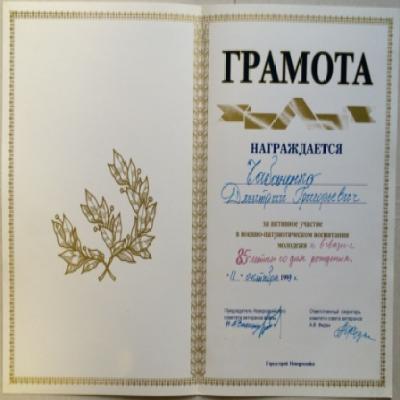 ГРАМОТА
НАГРАЖДАЕТСЯ
Чабаненко
Дмитрий Григорьевич
за активное участие
в военно-патриотическом воспитании
молодежи и в связи с
85 летием со дня рождения.
"11" октября 1999 г.
Председатель Новороссийского
комитета ветеранов войны
Ответственный секретарь
комитета совета ветеранов
А.Ф.
Город-герой Новороссийск